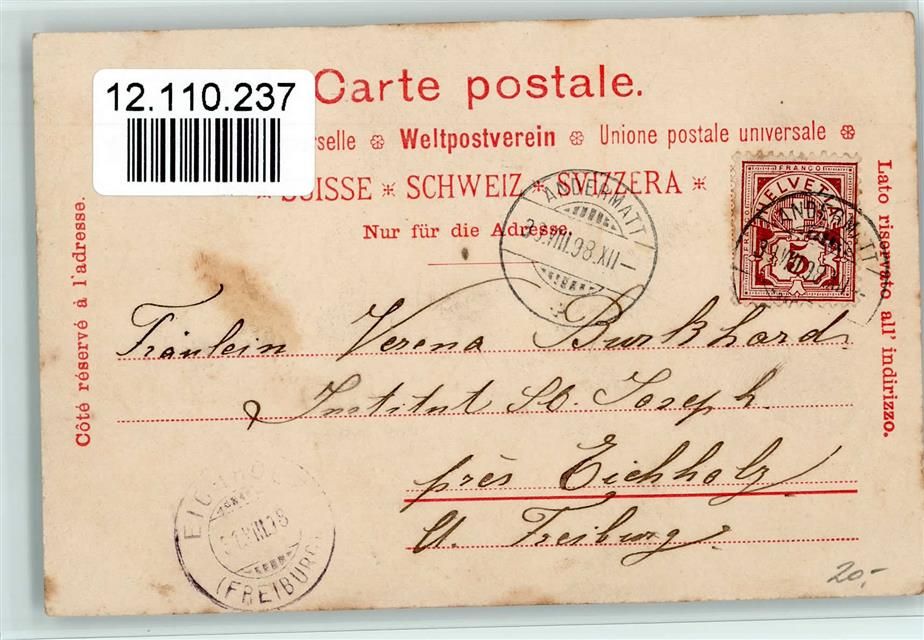 12.110.237
Carte postale.
Weltpostverein ❊ Unione postale universale ❊
SUISSE * SCHWEIZ * SVIZZERA *
Nur für die Adresse.
Côté réservé à l'adresse.
Lato riservato all' indirizzo.
FRANCO
HELVETIA
5
ANDERMATT
VIII.98.XII-
ANDERMATT
Fräulein Verena Burkhard
Institut St. Joseph.
près Eichholz
Ct. Freiburg.
VIII.98
(FREIBURG)
20.-